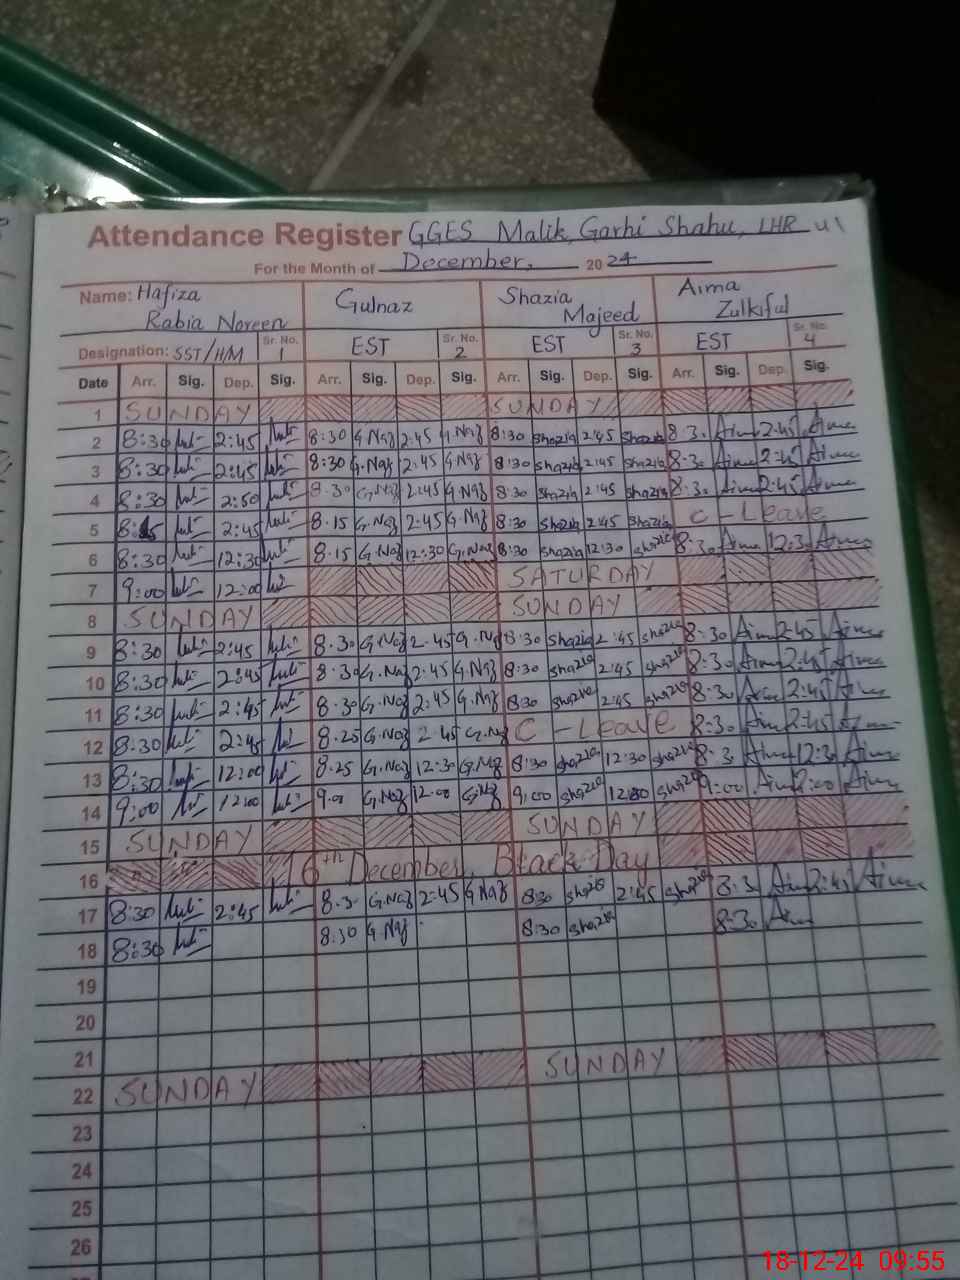 Attendance Register GGES Malik, Garhi Shahu, LHR
For the Month of December, 2024
Name: Hafiza Rabia Noreen Gulnaz Shazia Majeed Aima Zulkiful
Designation: SST/HM Sr. No. 1 EST Sr. No. 2 EST Sr. No. 3 EST Sr. No. 4
Date Arr. Sig. Dep. Sig. Arr. Sig. Dep. Sig. Arr. Sig. Dep. Sig. Arr. Sig. Dep. Sig.
1 SUNDAY SUNDAY
2 8:30 2:45 8:30 G.Naz 2:45 G.Naz 8:30 Shazia 2:45 Shazia 8:30 Aima 2:45 Aima
3 8:30 2:45 8:30 G.Naz 2:45 G.Naz 8:30 Shazia 2:45 Shazia 8:30 Aima 2:45 Aima
4 8:30 2:50 8.30 G.Naz 2:45 G.Naz 8:30 Shazia 2:45 Shazia 8:30 Aima 2:45 Aima
5 2:45 8.15 G.Naz 2:45 G.Naz 8:30 Shazia 2:45 Shazia C-Leave
6 8:30 12:30 8.15 G.Naz 12:30 G.Naz 8:30 Shazia 12:30 Shazia 8:30 Aima 12:30 Aima
7 9:00 12:00 SATURDAY
8 SUNDAY SUNDAY
9 8:30 2:45 8.30 G.Naz 2.45 G.Naz 8:30 Shazia 2:45 Shazia 8:30 Aima 2:45 Aima
10 8:30 2:45 8.30 G.Naz 2:45 G.Naz 8:30 Shazia 2:45 Shazia 8:30 Aima 2:45 Aima
11 8:30 2:45 8.30 G.Naz 2:45 G.Naz 8:30 Shazia 2:45 Shazia 8:30 Aima 2:45 Aima
12 8:30 2:45 8.25 G.Naz 2.45 G.Naz C-Leave 8:30 Aima 2:45 Aima
13 8:30 12:00 8.25 G.Naz 12:30 G.Naz 8:30 Shazia 12:30 Shazia 8:30 Aima 12:30 Aima
14 9:00 12:00 9.00 G.Naz 12.00 G.Naz 9:00 Shazia 12:00 Shazia 9:00 Aima 12:00 Aima
15 SUNDAY SUNDAY
16 16th December, Black Day
17 8:30 2:45 8.3 G.Naz 2:45 G.Naz 8:30 Shazia 2:45 Shazia 8:3 Aima 2:45 Aima
18 8:30 8:30 G.Naz 8:30 Shazia 8:30 Aima
19
20
21 SUNDAY
22 SUNDAY
23
24
25
26
18-12-24 09:55